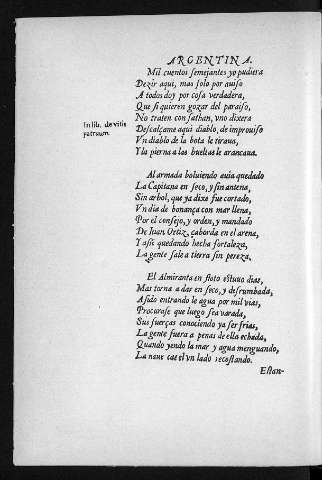 ARGENTINA.
Mil cuentos semejantes yo pudiera
Dezir aqui, mas solo por auiso
A todos doy por cosa verdadera,
Que si quieren gozar del paraiso,
No traten con sathan, vno dixera
In lib. de vitis
patrum.
Descalçame aqui diablo, de improuiso
Vn diablo de la bota le tiraua,
Y la pierna a las bueltas le arancaua.
Al armada boluiendo auia quedado
La Capitana en seco, y sin antena,
Sin arbol, que ya dixe fue cortado,
Vn dia de bonança con mar llena,
Por el consejo, y orden, y mandado
De Iuan Ortiz, çaborda en el arena,
Y assi quedando hecha fortaleza,
La gente sale a tierra sin pereza.
El Almiranta en floto estuuo dias,
Mas torna a dar en seco, y desrumbada,
Asido entrando le agua por mil vias,
Procurase que luego sea varada,
Sus fuerças conociendo ya ser frias,
La gente fuera a penas de ella echada,
Quando yendo la mar y agua menguando,
La naue cae el vn lado recostando.
Estan-